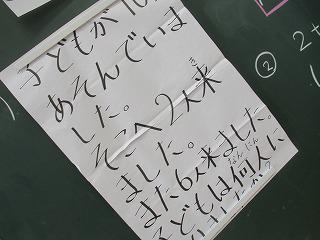 子どもが10
あそんでいま
した。
そこへ2人来
き
ました。
また6人来ました。
なんにん
子どもは何人に
② 2+